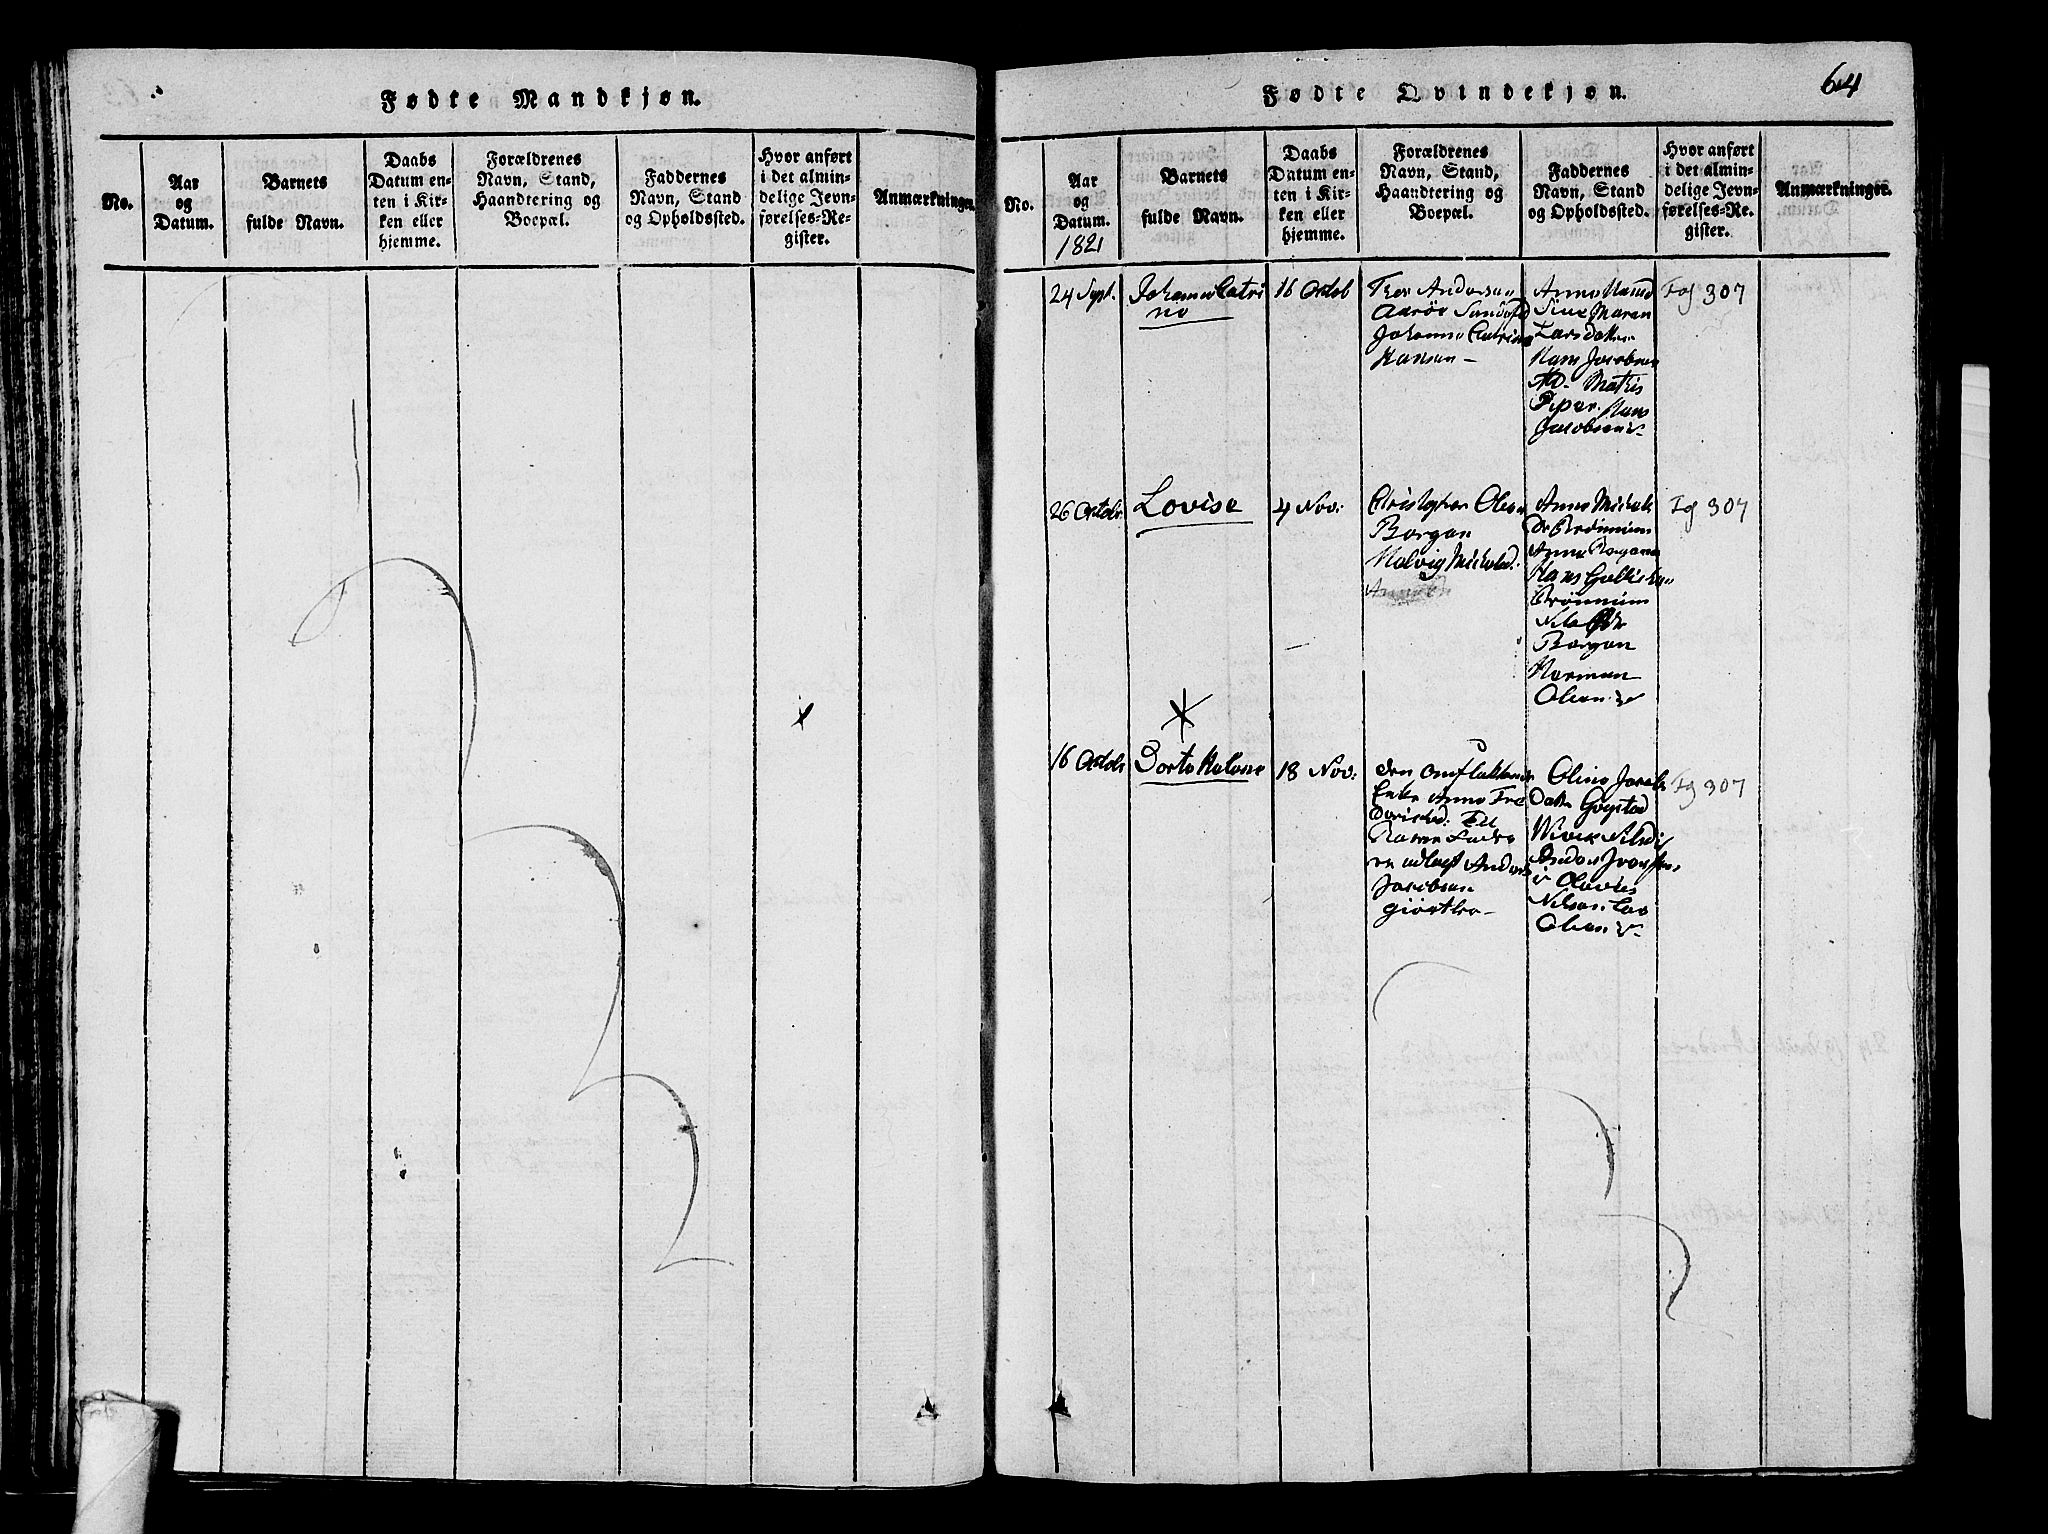 Fødte Mandkjøn.
No.
Aar
og
Datum.
Barnets
fulde Navn.
Daabs
Datum en-
ten i Kir-
ken eller
hjemme.
Forældrenes
Navn, Stand,
Haandtering og
Boepæl.
Faddernes
Navn, Stand
og Opholdssted.
Hvor anført
i det almin-
delige Jevn-
førelses-Re-
gister.
Anmærkninger.
Fødte Qvindekjøn.
64
No.
Aar
og
Datum.
1821
Barnets
fulde Navn.
Daabs
Datum en-
ten i Kir-
ken eller
hjemme.
Forældrenes
Navn, Stand,
Haandtering og
Boepæl.
Faddernes
Navn, Stand
og Opholdssted.
Hvor anført
i det almin-
delige Jevn-
førelses-Re-
gister.
Anmærkninger.
24 Sept.
Johanne Catri
ne
16 Octob
Thor Andersen
Aarøe
Johanne Catrine
Hansen
Anne Hansd
Maren
Larsdatter
Hans Jacobsen
Mathis
Piper. Hans
Jacobsen
Fol 307
26 Octobr
Lovise
4 Nov:
Christopher Olsen
Borgen
Helvig Michelsd.
Anne Michels
Dr Brönnum
Anne Borgen
Hans
Brönnum
Nils
Borgen
Herman
Olsen
Fol 307
16 Octobr
Dorte Helene
18 Nov:
den omflakkende
Enke Anne Fre
dericsd:
udlagt Anders
Jacobsen
giörtler
Oline Jacobs
Datter Gogstad
Anders
Nilsen
Olsen
Fol 307